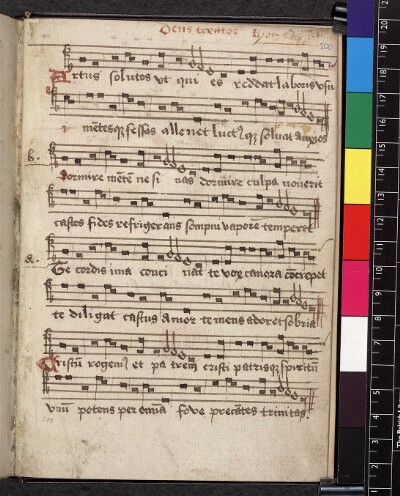 Deus creator
200
Artus solutos ut qui es reddat laboris usui
mẽtesqȝ fessas alleuet luctꝰqȝ soluat anxios
b.
Dormire mẽtẽ ne si nas dormire culpa nouerit
castos fides refrigerans sompni vaporẽ temperet
a.
Te cordis ima conci nãt te vox canora cõcrepet
te diligat castus amor te mens adoret sobria
Cristũ rogemꝰ et pa trem cristi patrisqȝ spiritũ
vnũ potens per omnia fove precãtes trinitas.